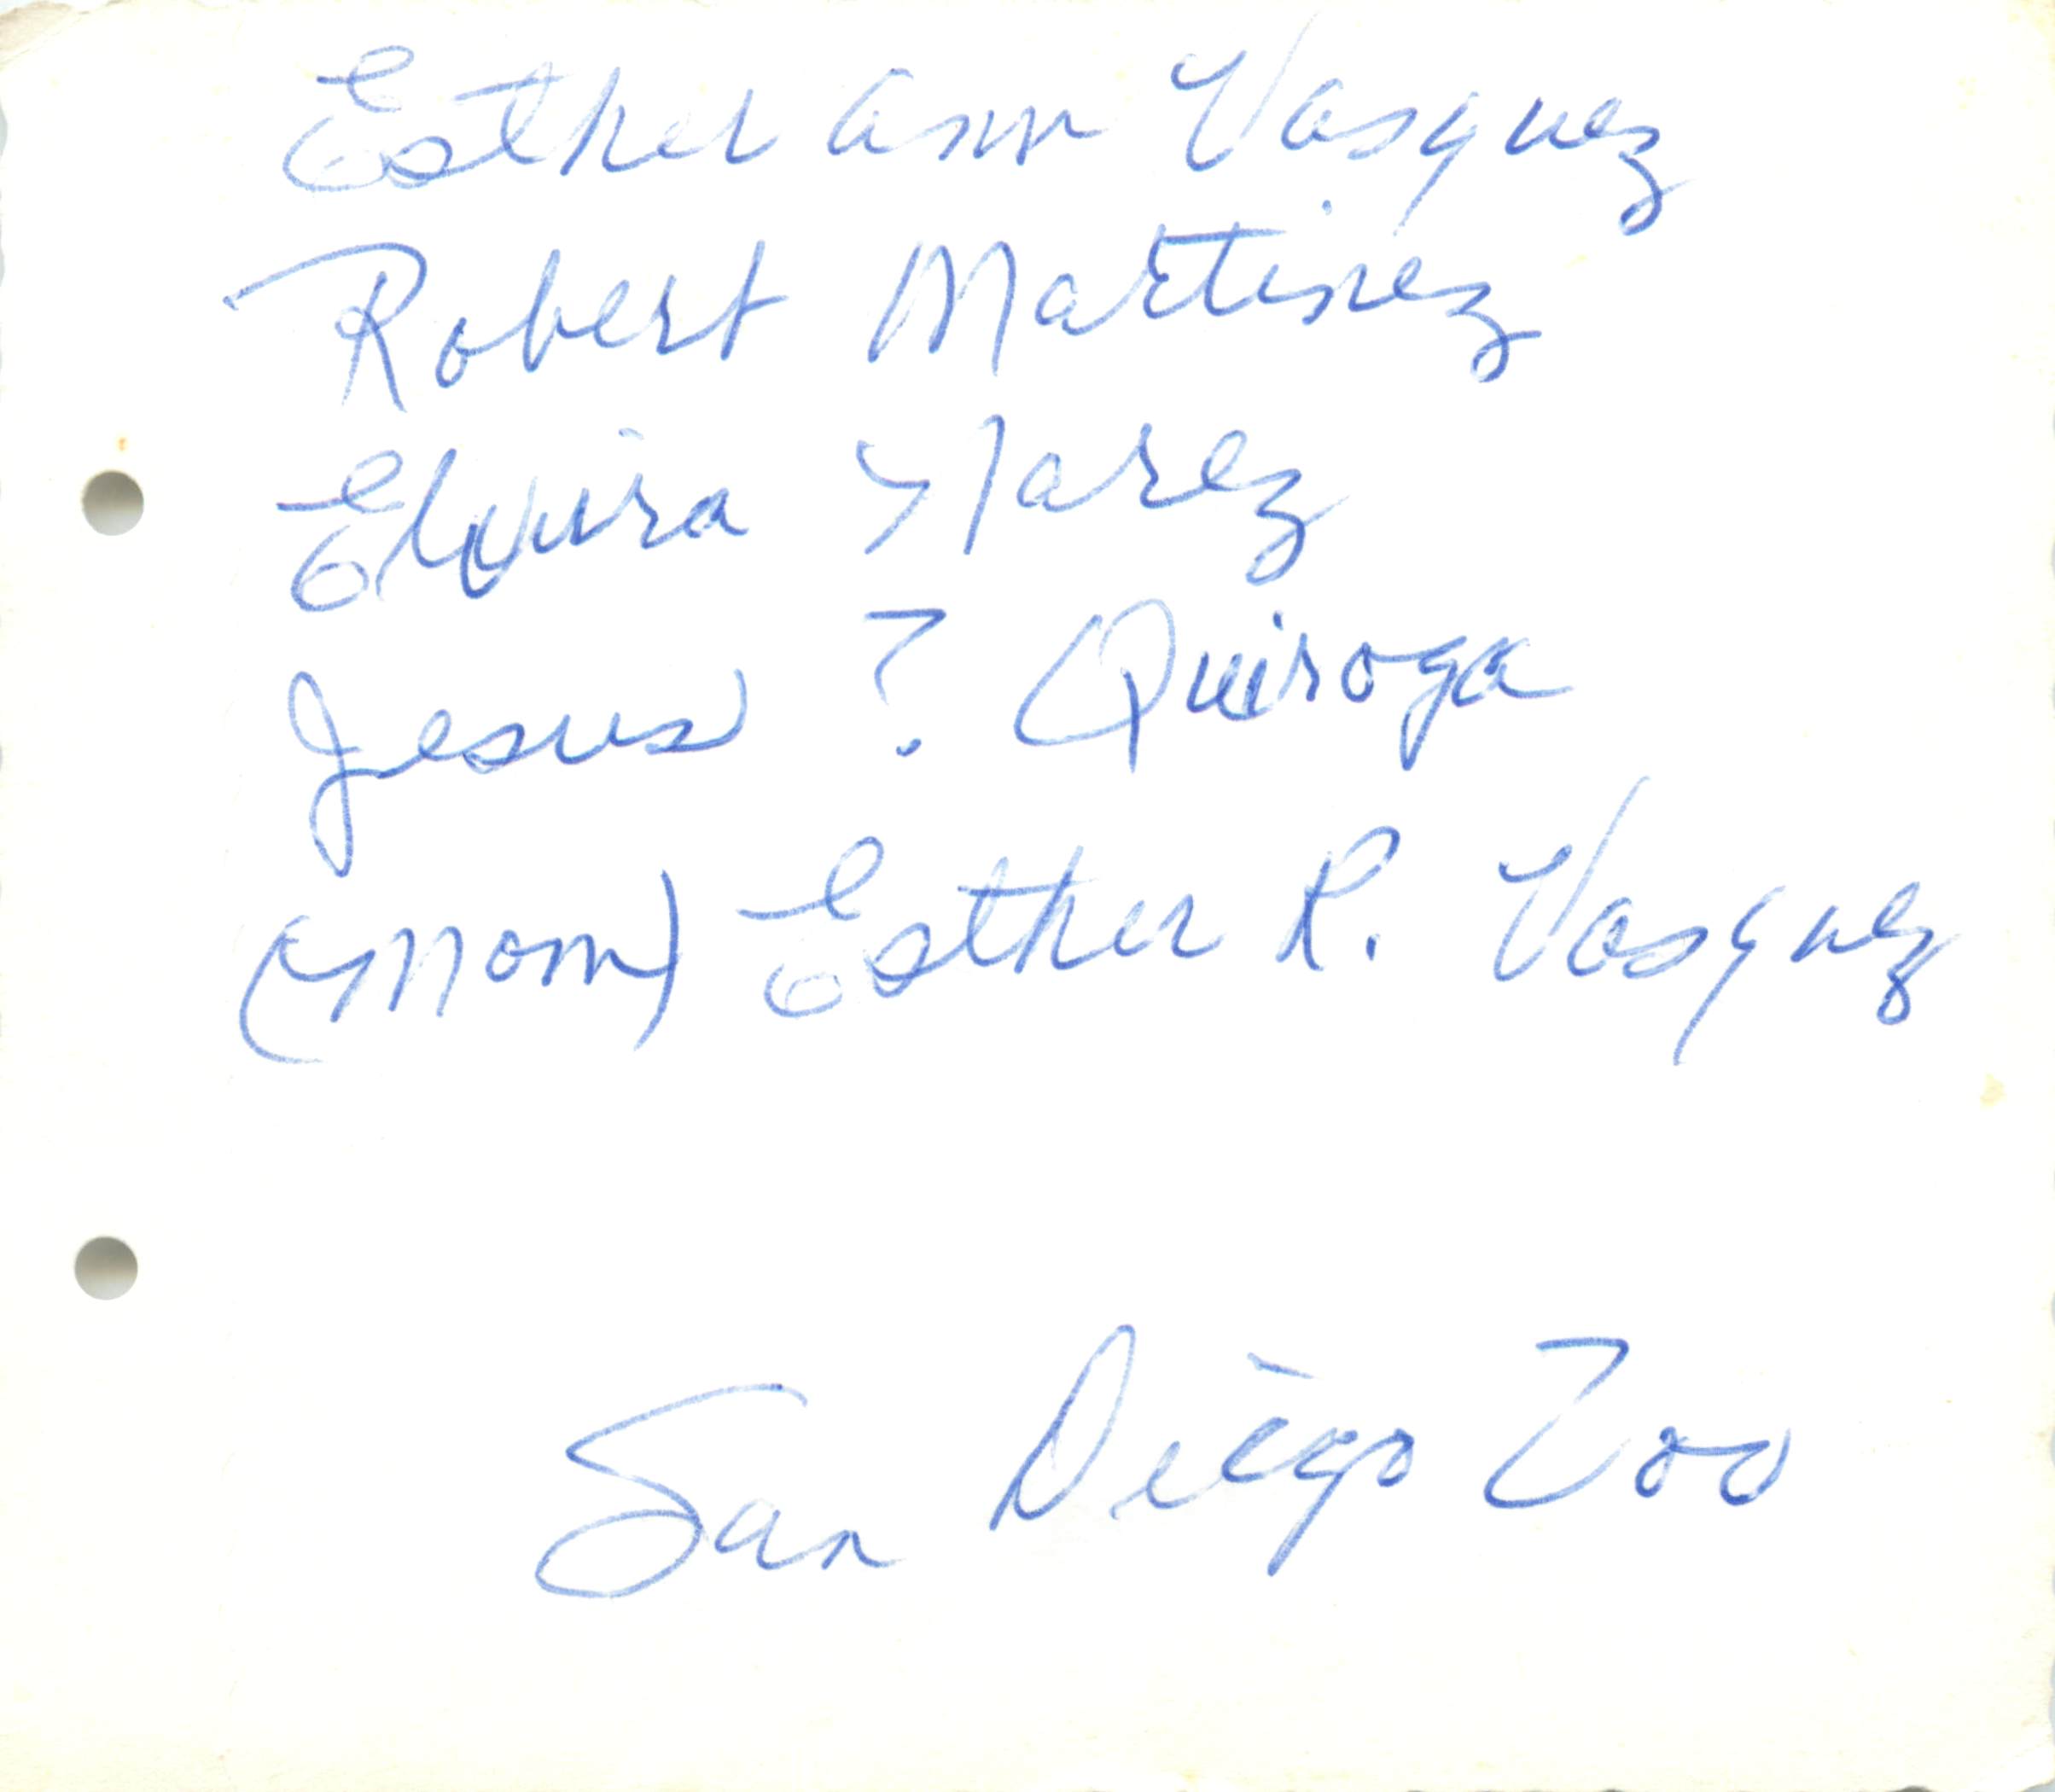 Esther Ann Vasquez
Robert Martinez
Elvira Narez
Jesus ? Quiroga
(Mom) Esther R. Vasquez
San Diego Zoo